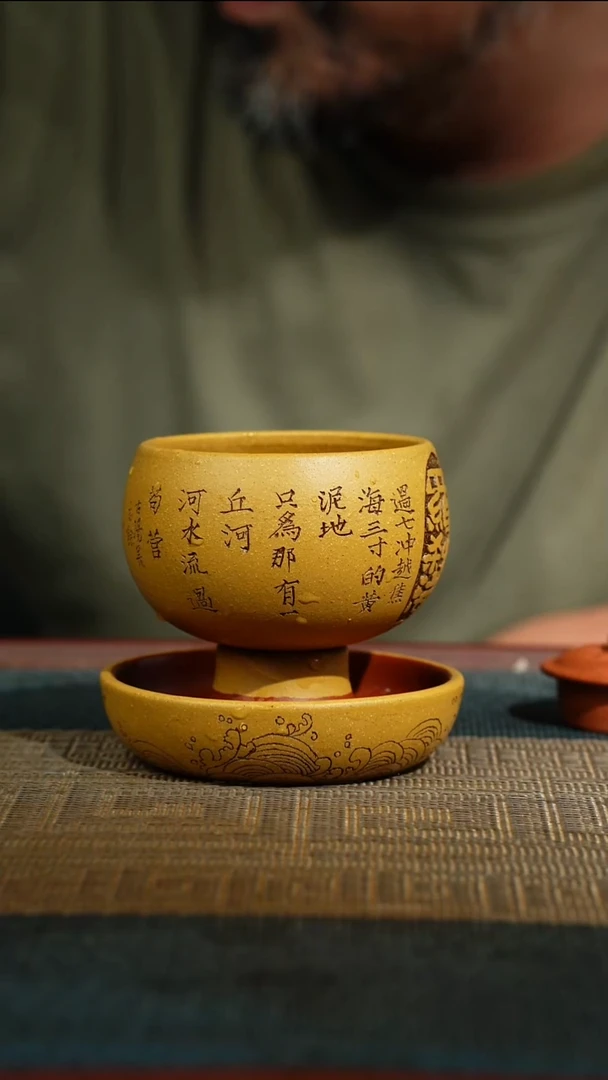 過七冲越蕉
海三寸的黄
泥地
只爲那有一
丘河
河水流過
苟营